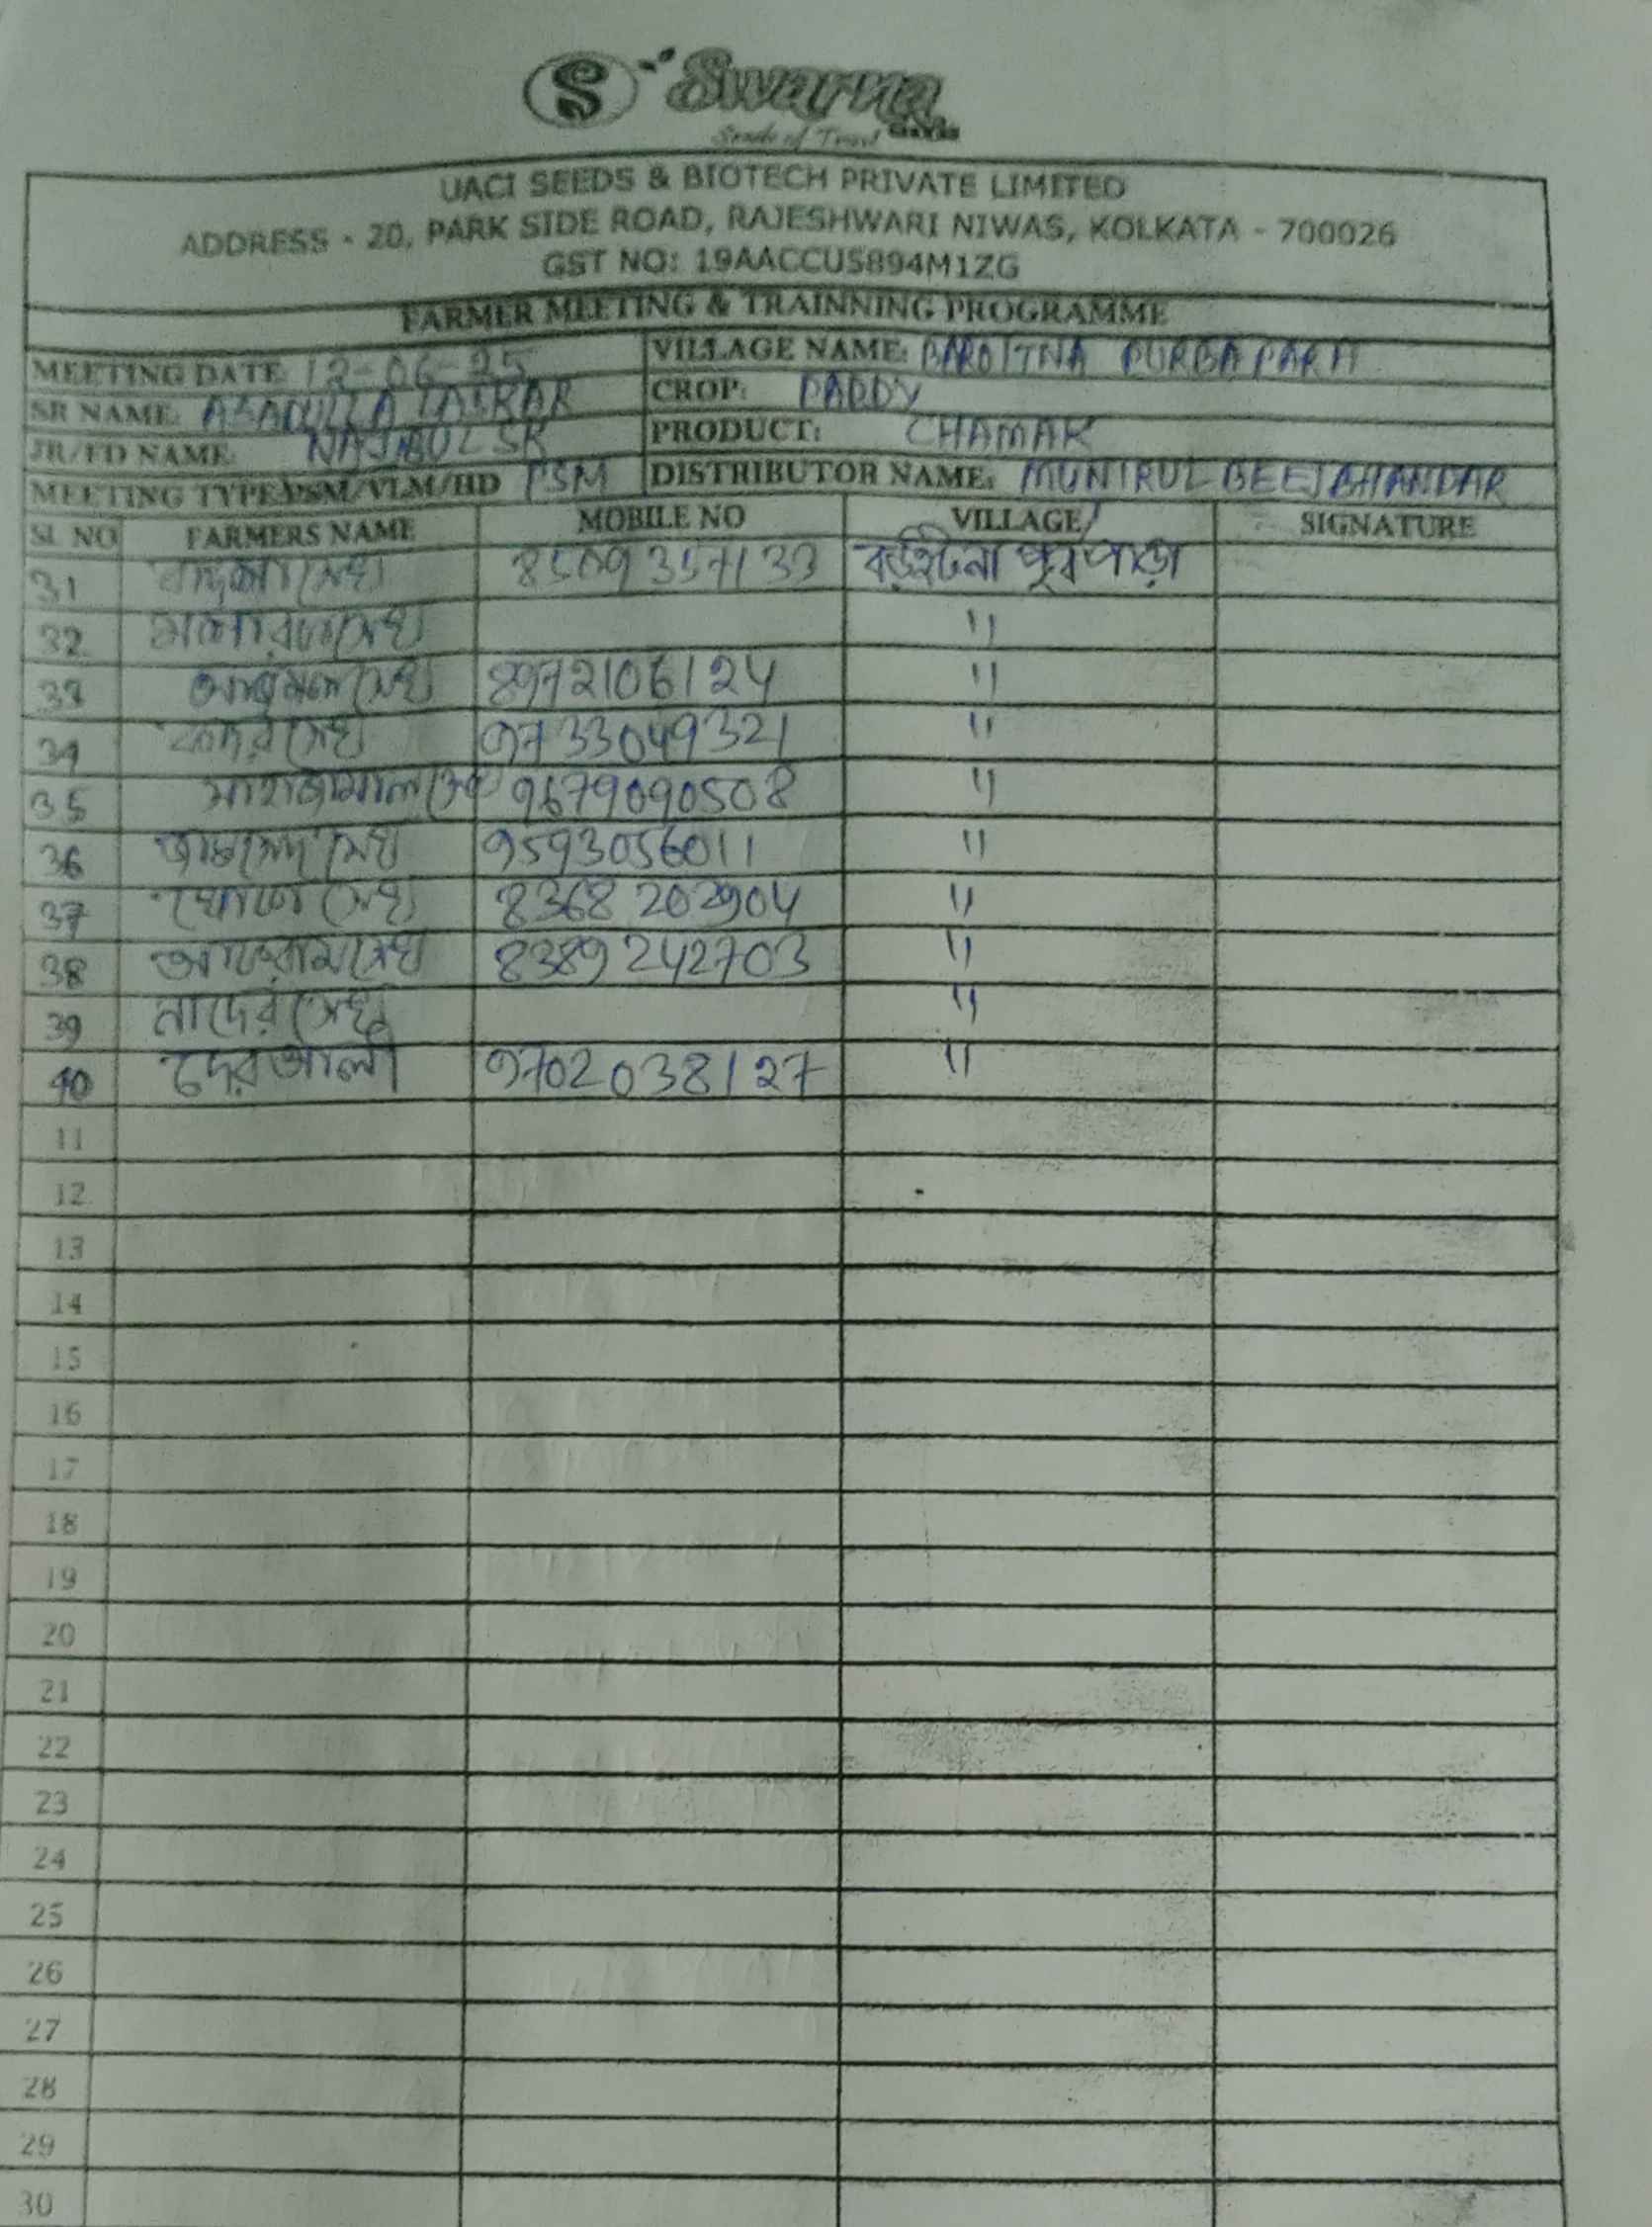 S Swarna
Seeds of Trust Seeds
UACI SEEDS & BIOTECH PRIVATE LIMITED
ADDRESS - 20, PARK SIDE ROAD, RAJESHWARI NIWAS, KOLKATA - 700026
GST NO: 19AACCU5894M1ZG
FARMER MEETING & TRAINNING PROGRAMME
MEETING DATE: 12-06-25 VILLAGE NAME: PURBA PARA
SR NAME: ASADULLA LASKAR CROP: PADDY
JR/FD NAME: NAJABUL SK PRODUCT: CHAMAK
MEETING TYPE: PSM/VLM/HD PSM DISTRIBUTOR NAME: MUNIRUL BEEJ BHANDAR
SL NO FARMERS NAME MOBILE NO VILLAGE SIGNATURE
31 সেখ 8509357133 পূর্বপাড়া
32 সেখ "
33 সেখ 8972106124 "
34 সেখ 9733049321 "
35 সাহাজামাল সেখ 9679090508 "
36 সেখ 9593056011 "
37 সেখ 8368202904 "
38 সেখ 8389242703 "
39 নাদের সেখ "
40 দের আলী 9702038127 "
11
12
13
14
15
16
17
18
19
20
21
22
23
24
25
26
27
28
29
30